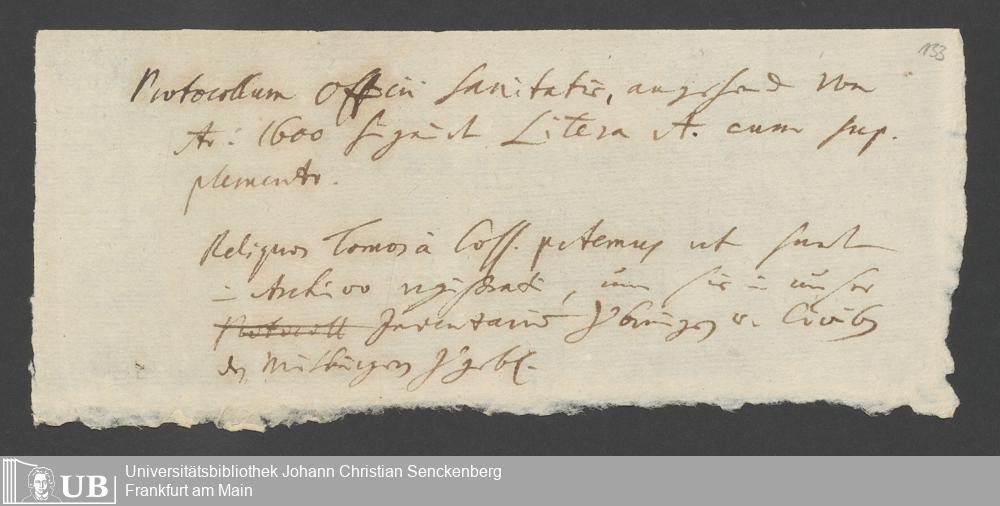 133
Protocollum Officii Sanitatis, angehend von
Ao: 1600 signirt Litera A. cum sup-
plemento.
Reliquos Tomos à Coss. petemus ut sunt
in Archivo registrati, um sie in unser
Protocoll Inventarium zu bringen u.
den Mitbürgern
Universitätsbibliothek Johann Christian Senckenberg
Frankfurt am Main
UB